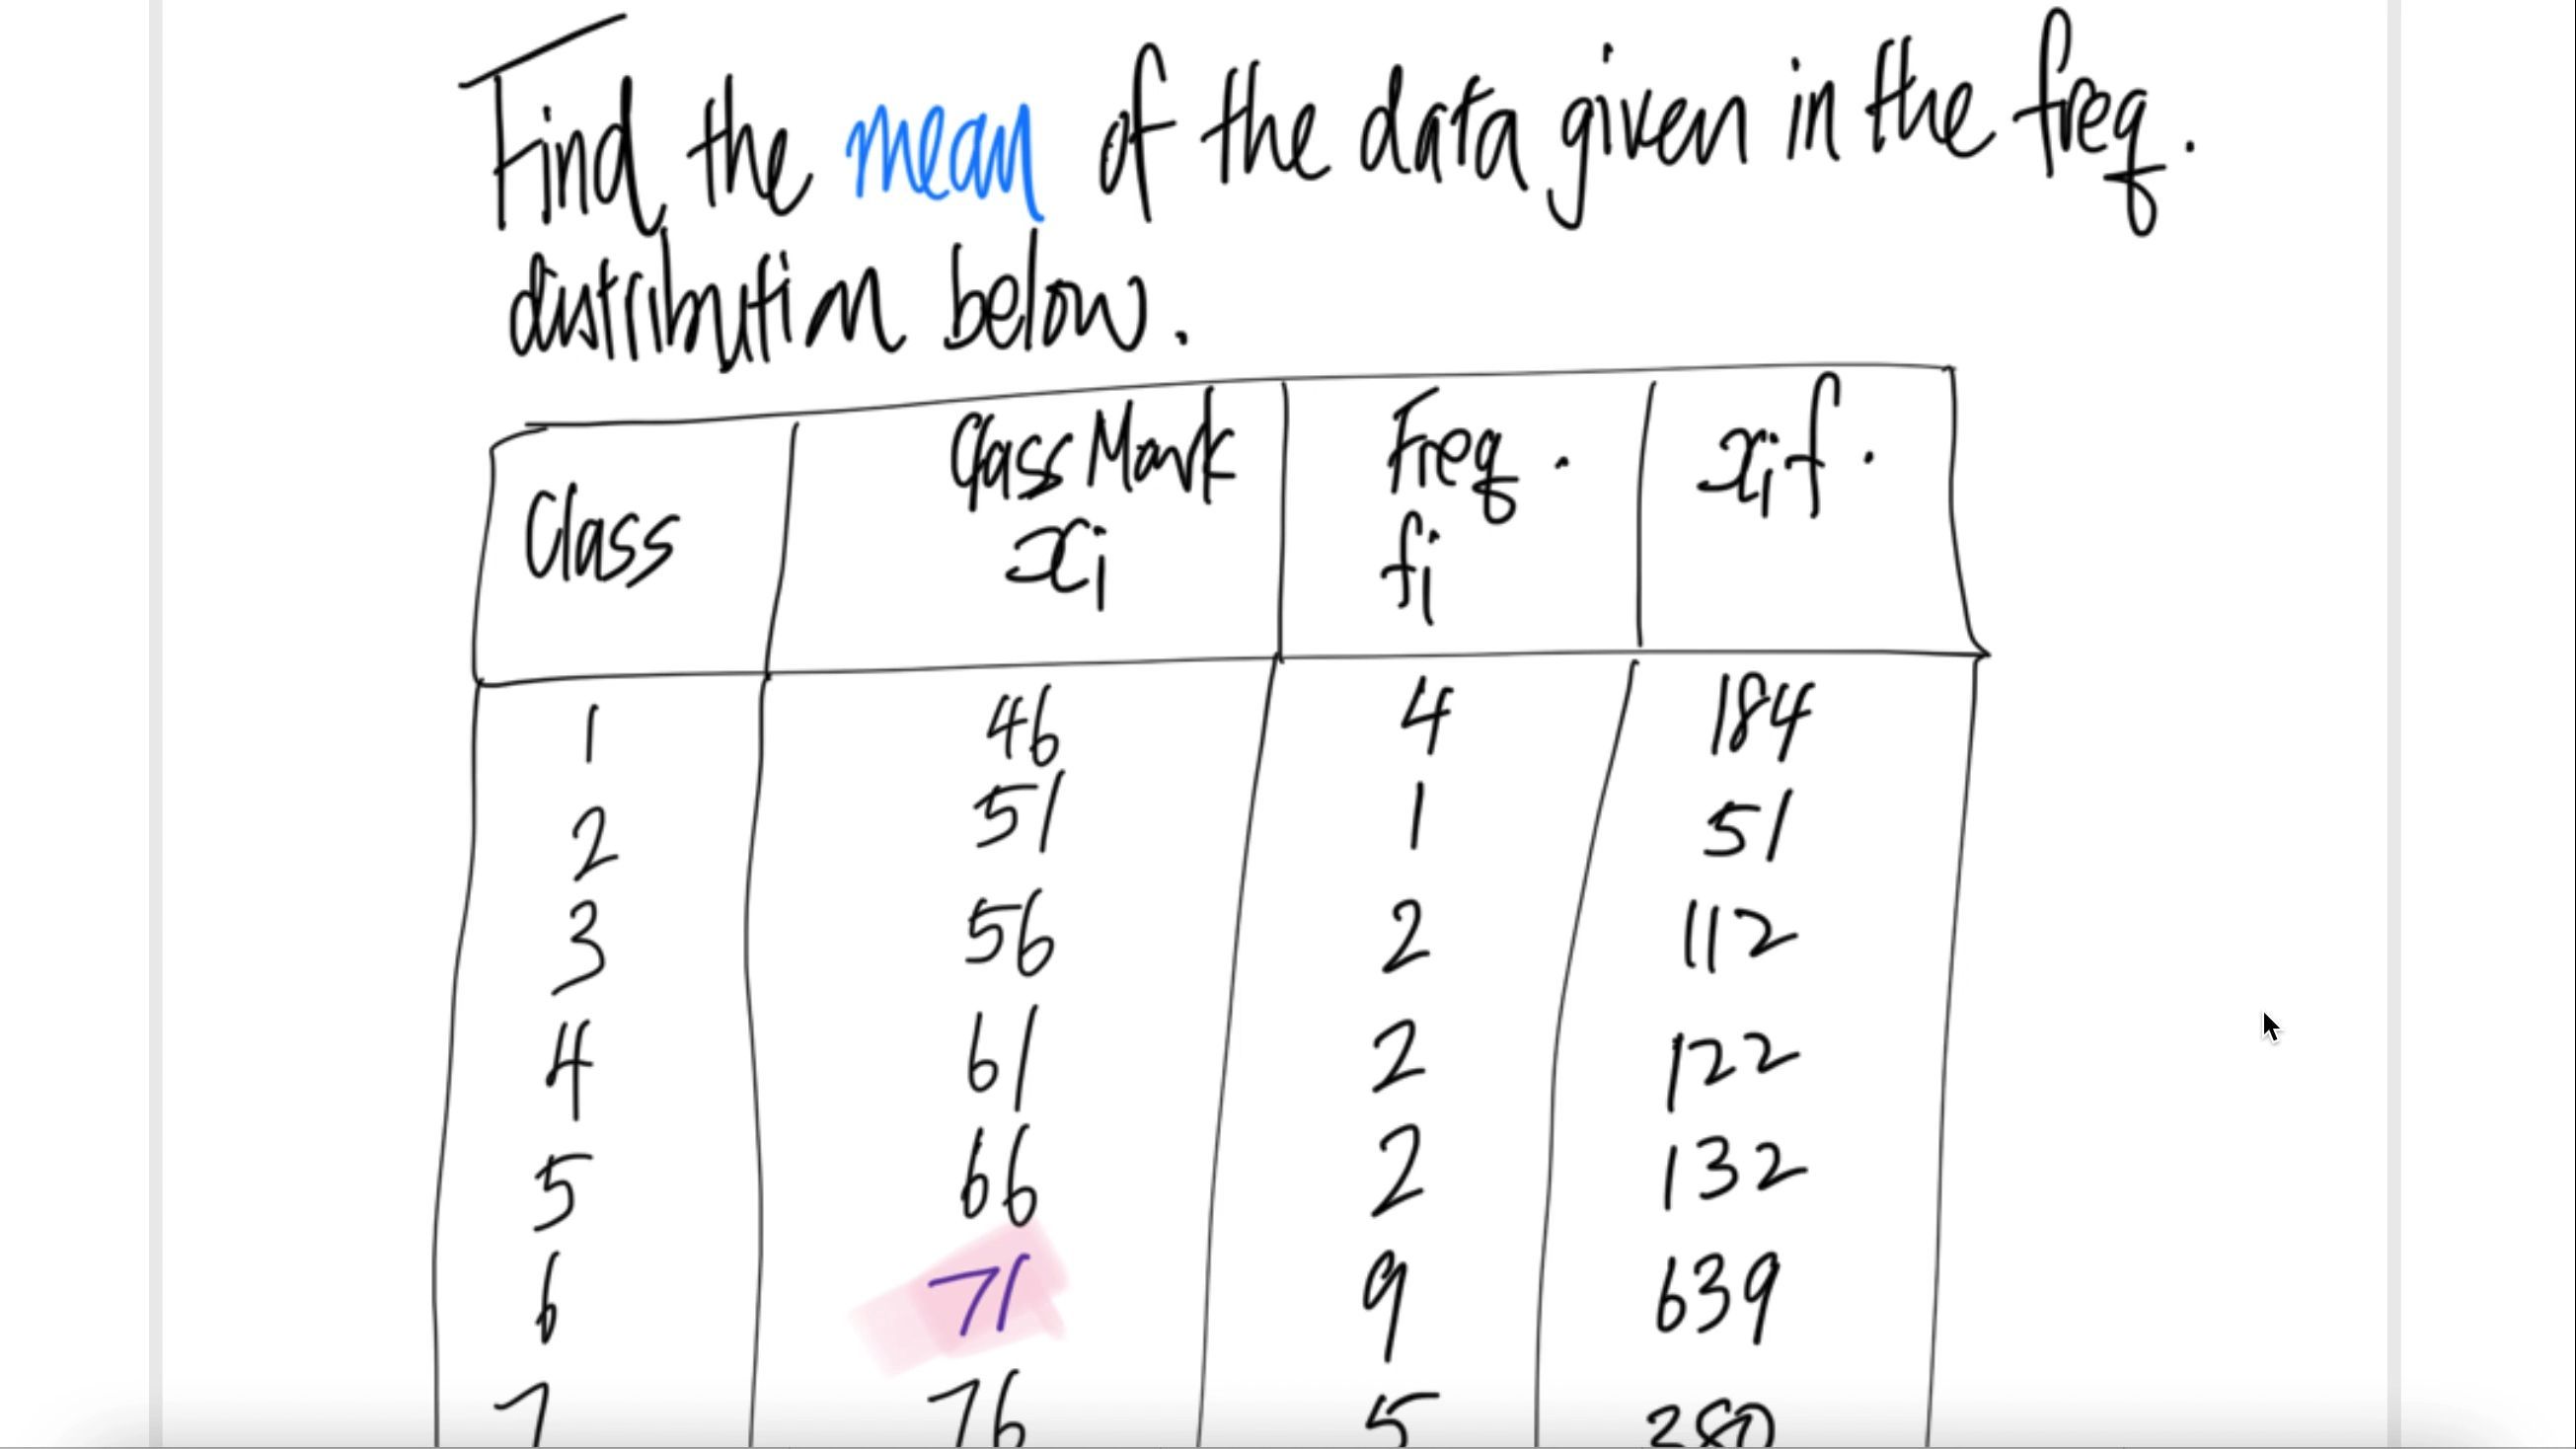 Find the mean of the data given in the freq.
distribution below.
Class Class Mark Freq. xif.
xi fi
1 46 4 184
2 51 1 51
3 56 2 112
4 61 2 122
5 66 2 132
6 71 9 639
7 76 5 380